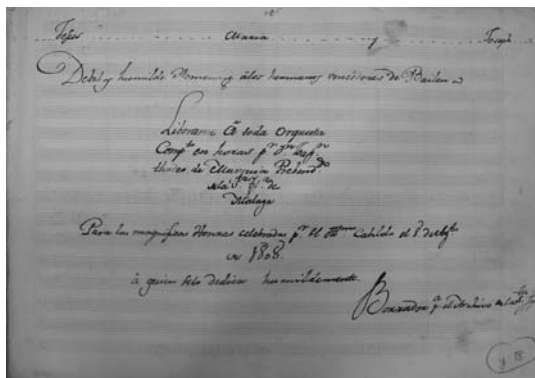 Jesus Maria y Joseph
Debil y humilde Omenaje a los hermanos vencedores de Bailen
Liberame á toda Orquesta
Comp.to en horas p.r D.n
de Murguia Prebend.do
de la S.ta Ig.a de
Malaga
Para las magnificas Honras celebradas p.r el Cabildo el 1.º de
de 1808.
á quien selo dedica humildemente.
Borrador p.a el Archivo de la
18